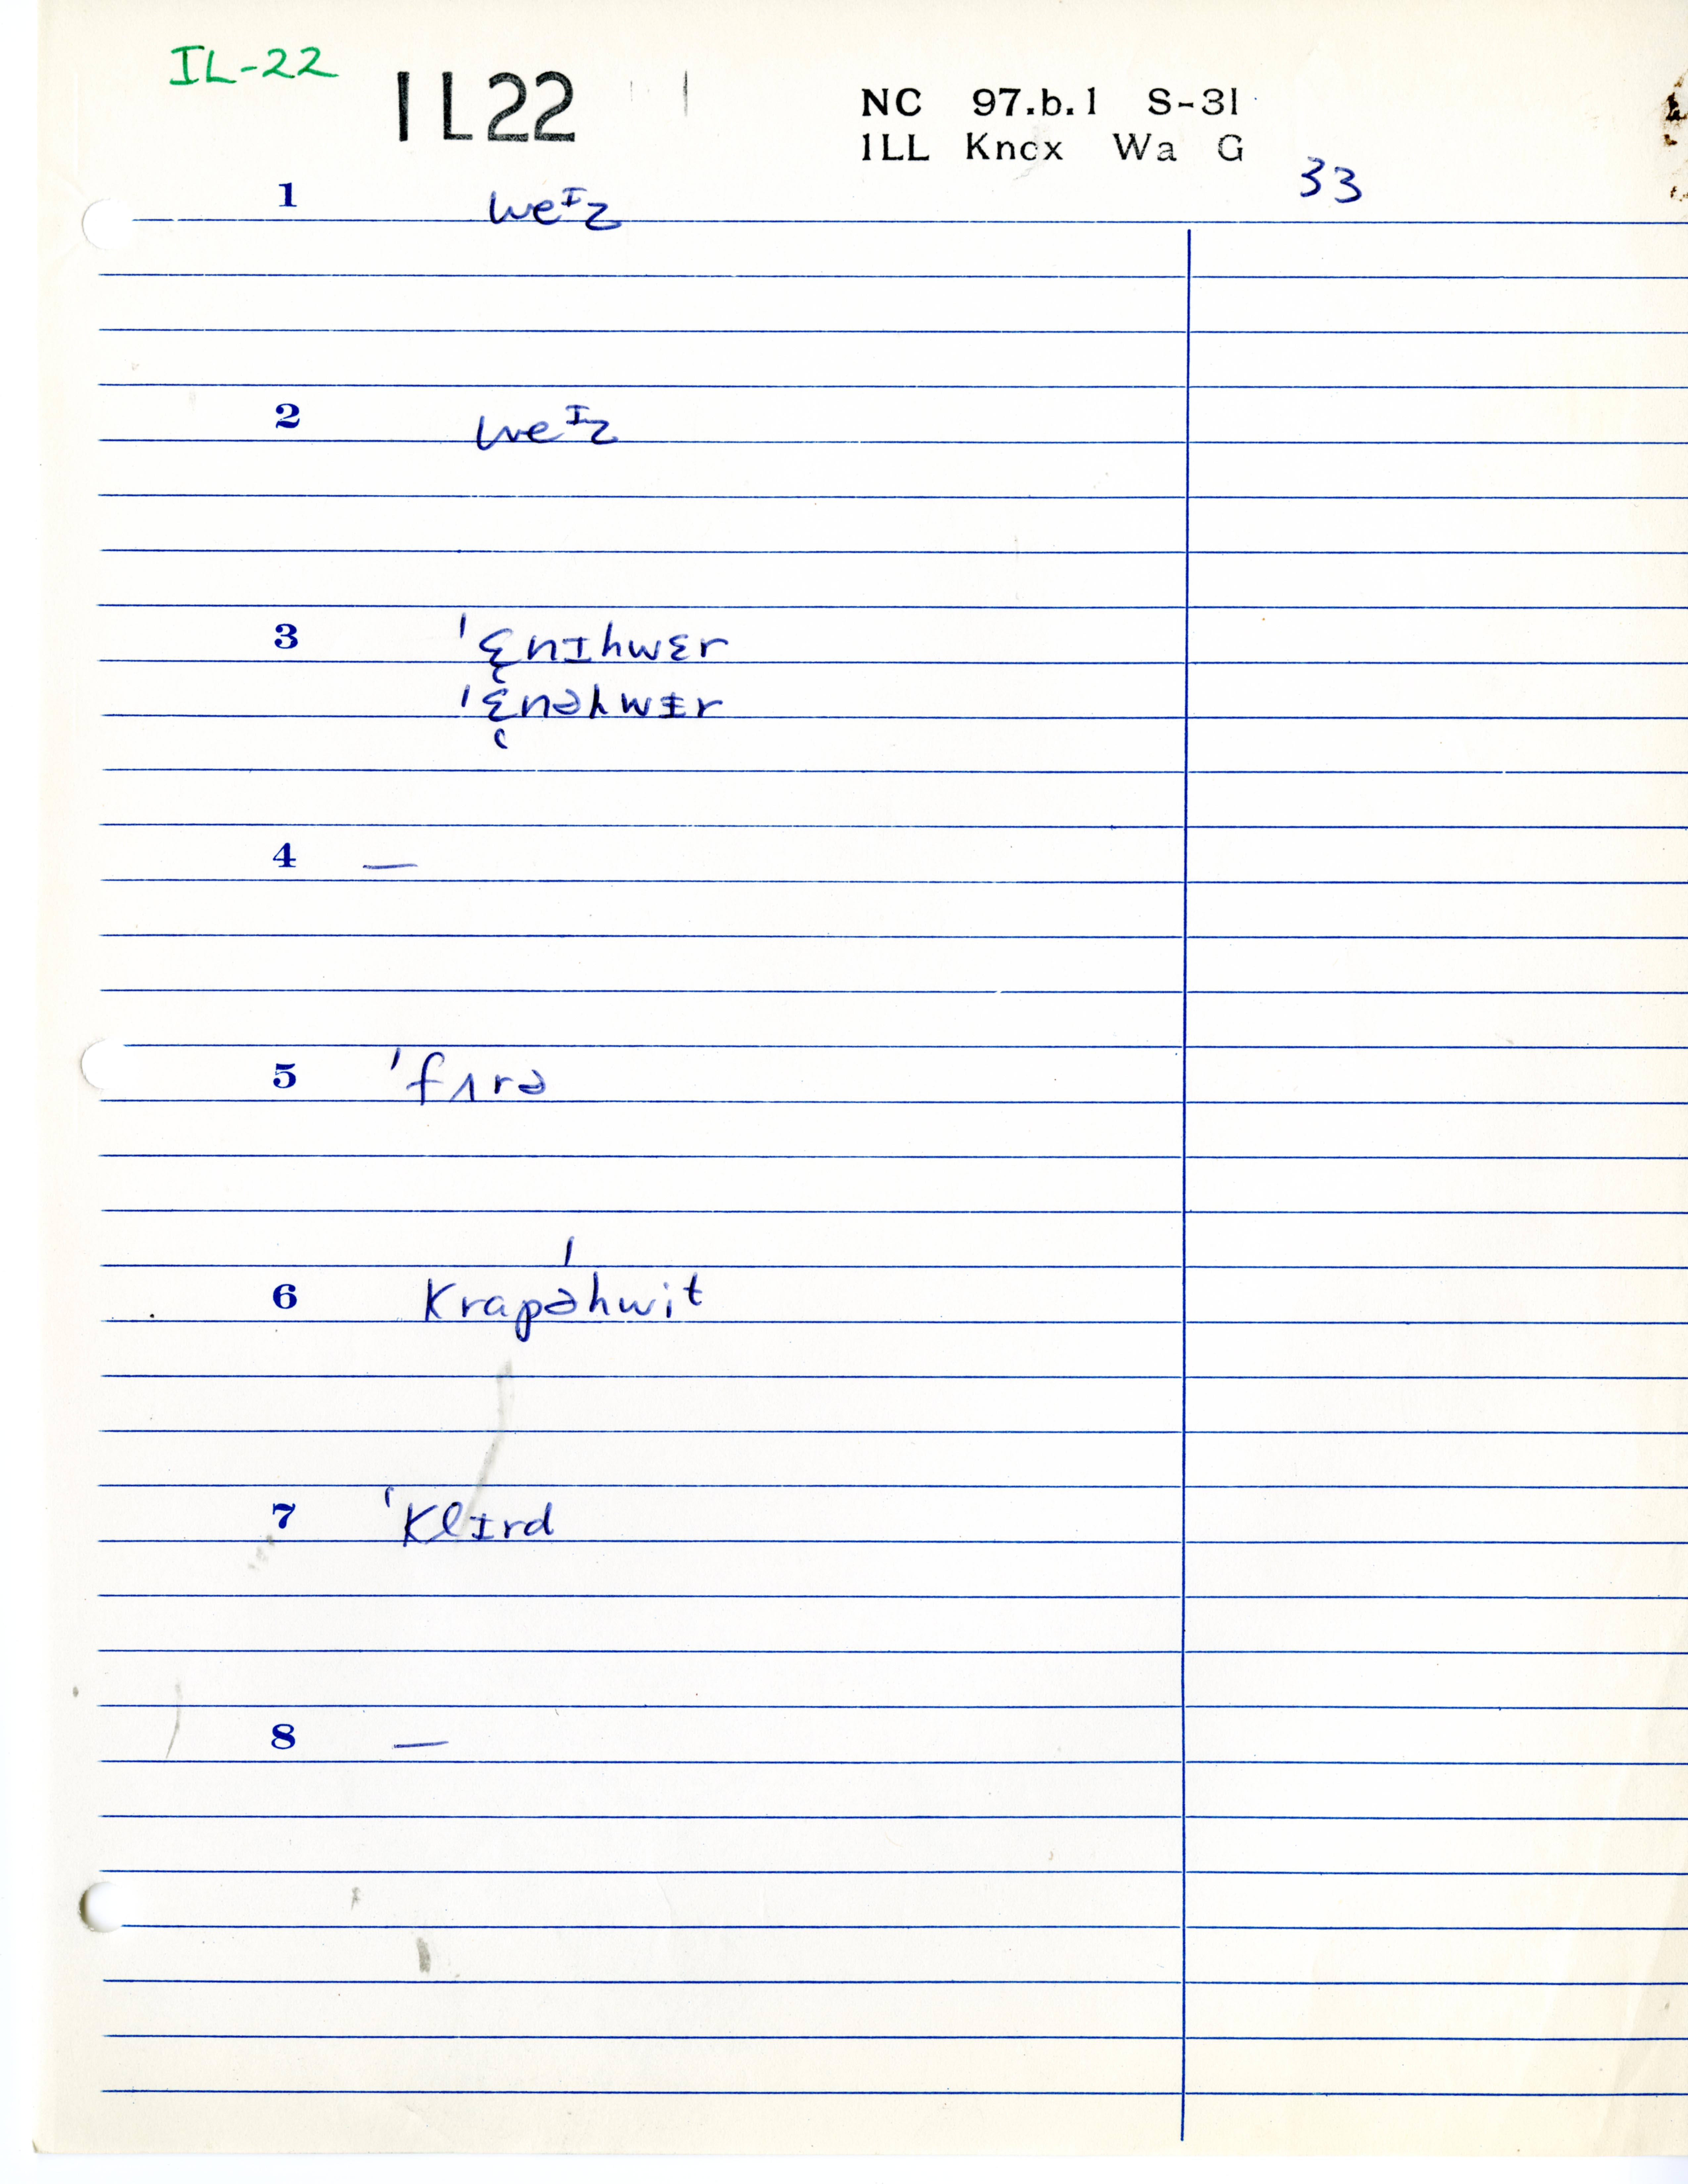 IL-22
IL22
NC 97.b.1 S-31
ILL Knox Wa G
33
1 weᶦz
2 weᶦz
3 'ɛ̜nɪhwɛr
'ɛ̜nəhwɪr
4 —
5 'fʌrə
6 krapə'hwit
7 'klɪrd
8 —